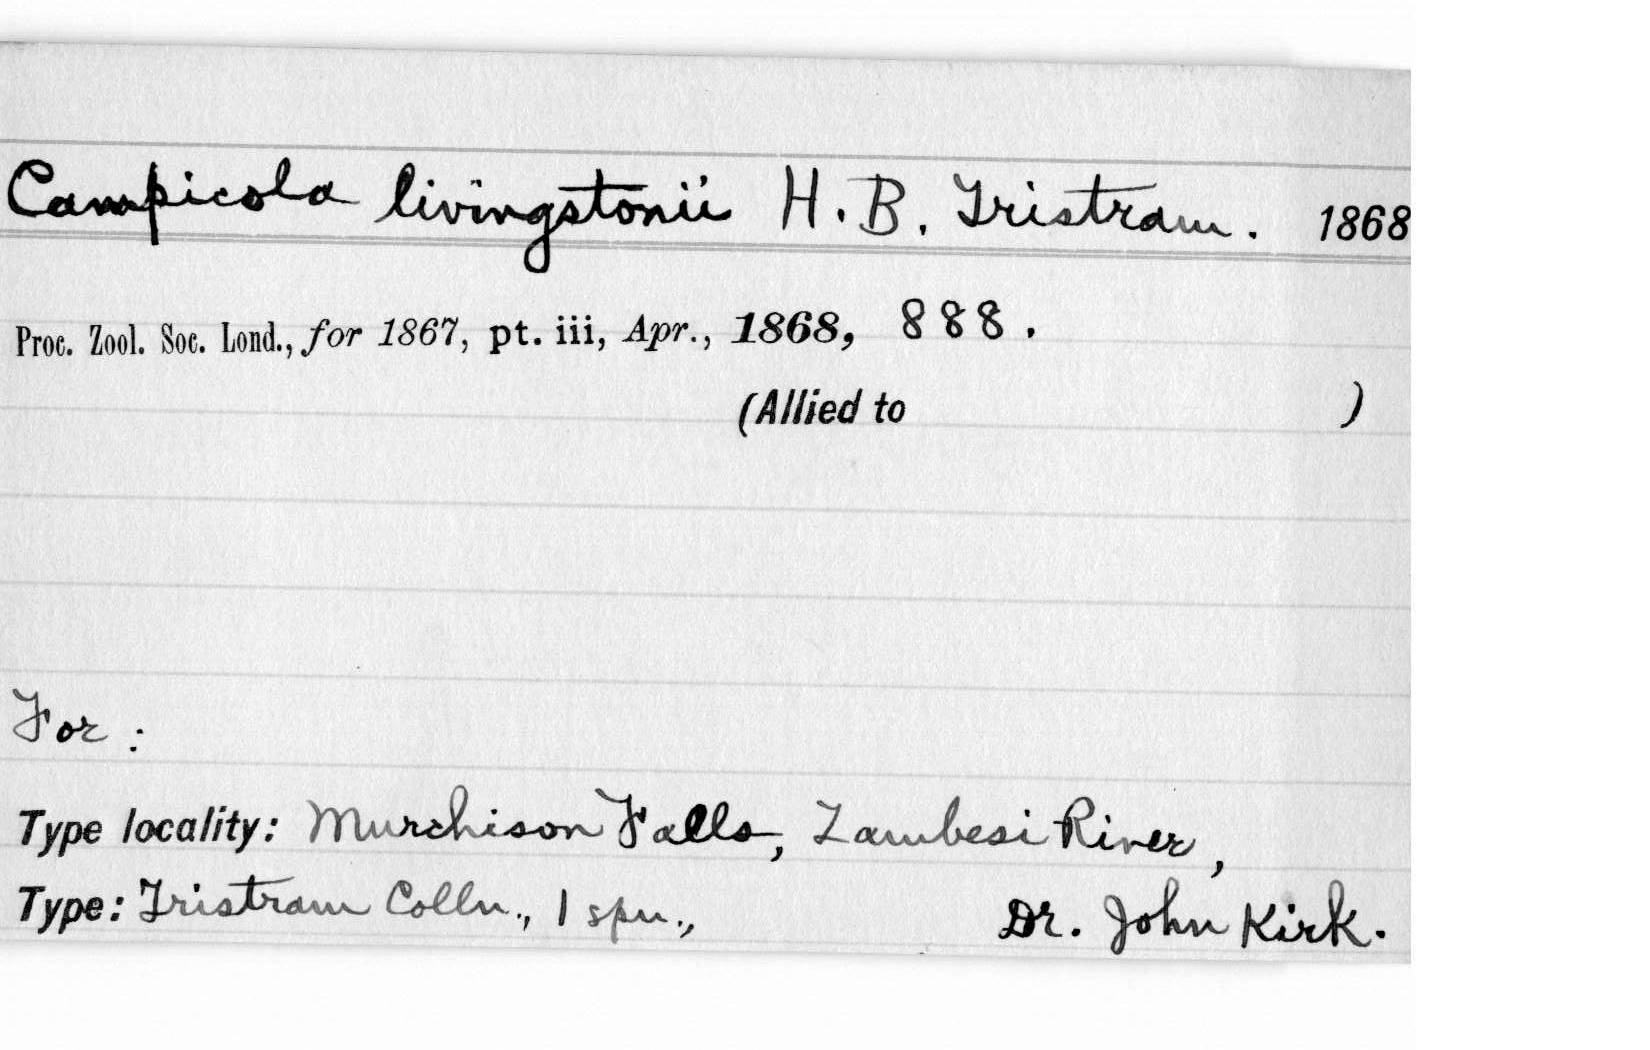 Campicola livingstonii H. B. Tristram. 1868
Proc. Zool. Soc. Lond., for 1867, pt. iii, Apr., 1868, 888.
(Allied to )
For :
Type locality: Murchison Falls, Zambesi River,
Type: Tristram Colln., 1 spm., Dr. John Kirk.